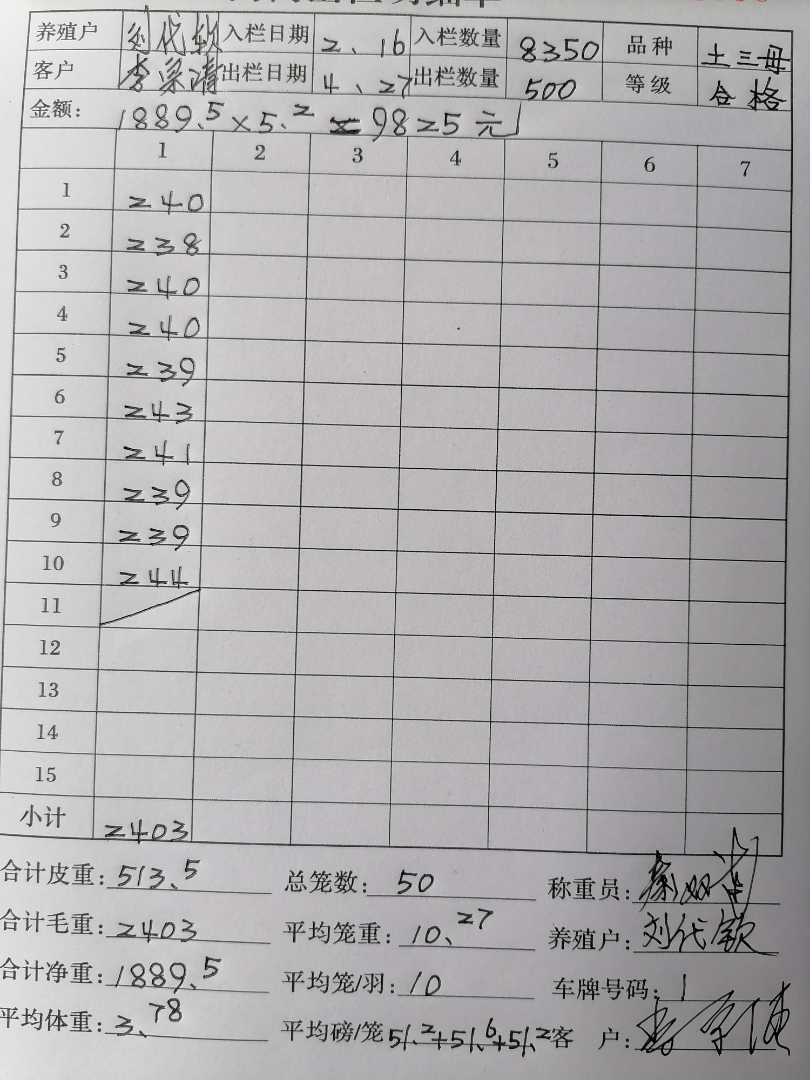 养殖户 刘代钦 入栏日期 2、16 入栏数量 8350 品种 土三母
客户 出栏日期 4、27 出栏数量 500 等级 合格
金额: 1889.5×5.2=9825元
1 2 3 4 5 6 7
1 240
2 238
3 240
4 240
5 239
6 243
7 241
8 239
9 239
10 244
11
12
13
14
15
小计 2403
合计皮重: 513.5 总笼数: 50 称重员:
合计毛重: 2403 平均笼重: 10.27 养殖户: 刘代钦
合计净重: 1889.5 平均笼/羽: 10 车牌号码: 1
平均体重: 3.78 平均磅/笼 51.2+51.6+51.2 客户: